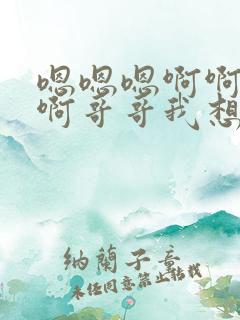 嗯嗯嗯啊啊
啊哥哥我想
纳蘭子意
未经同意禁止转载